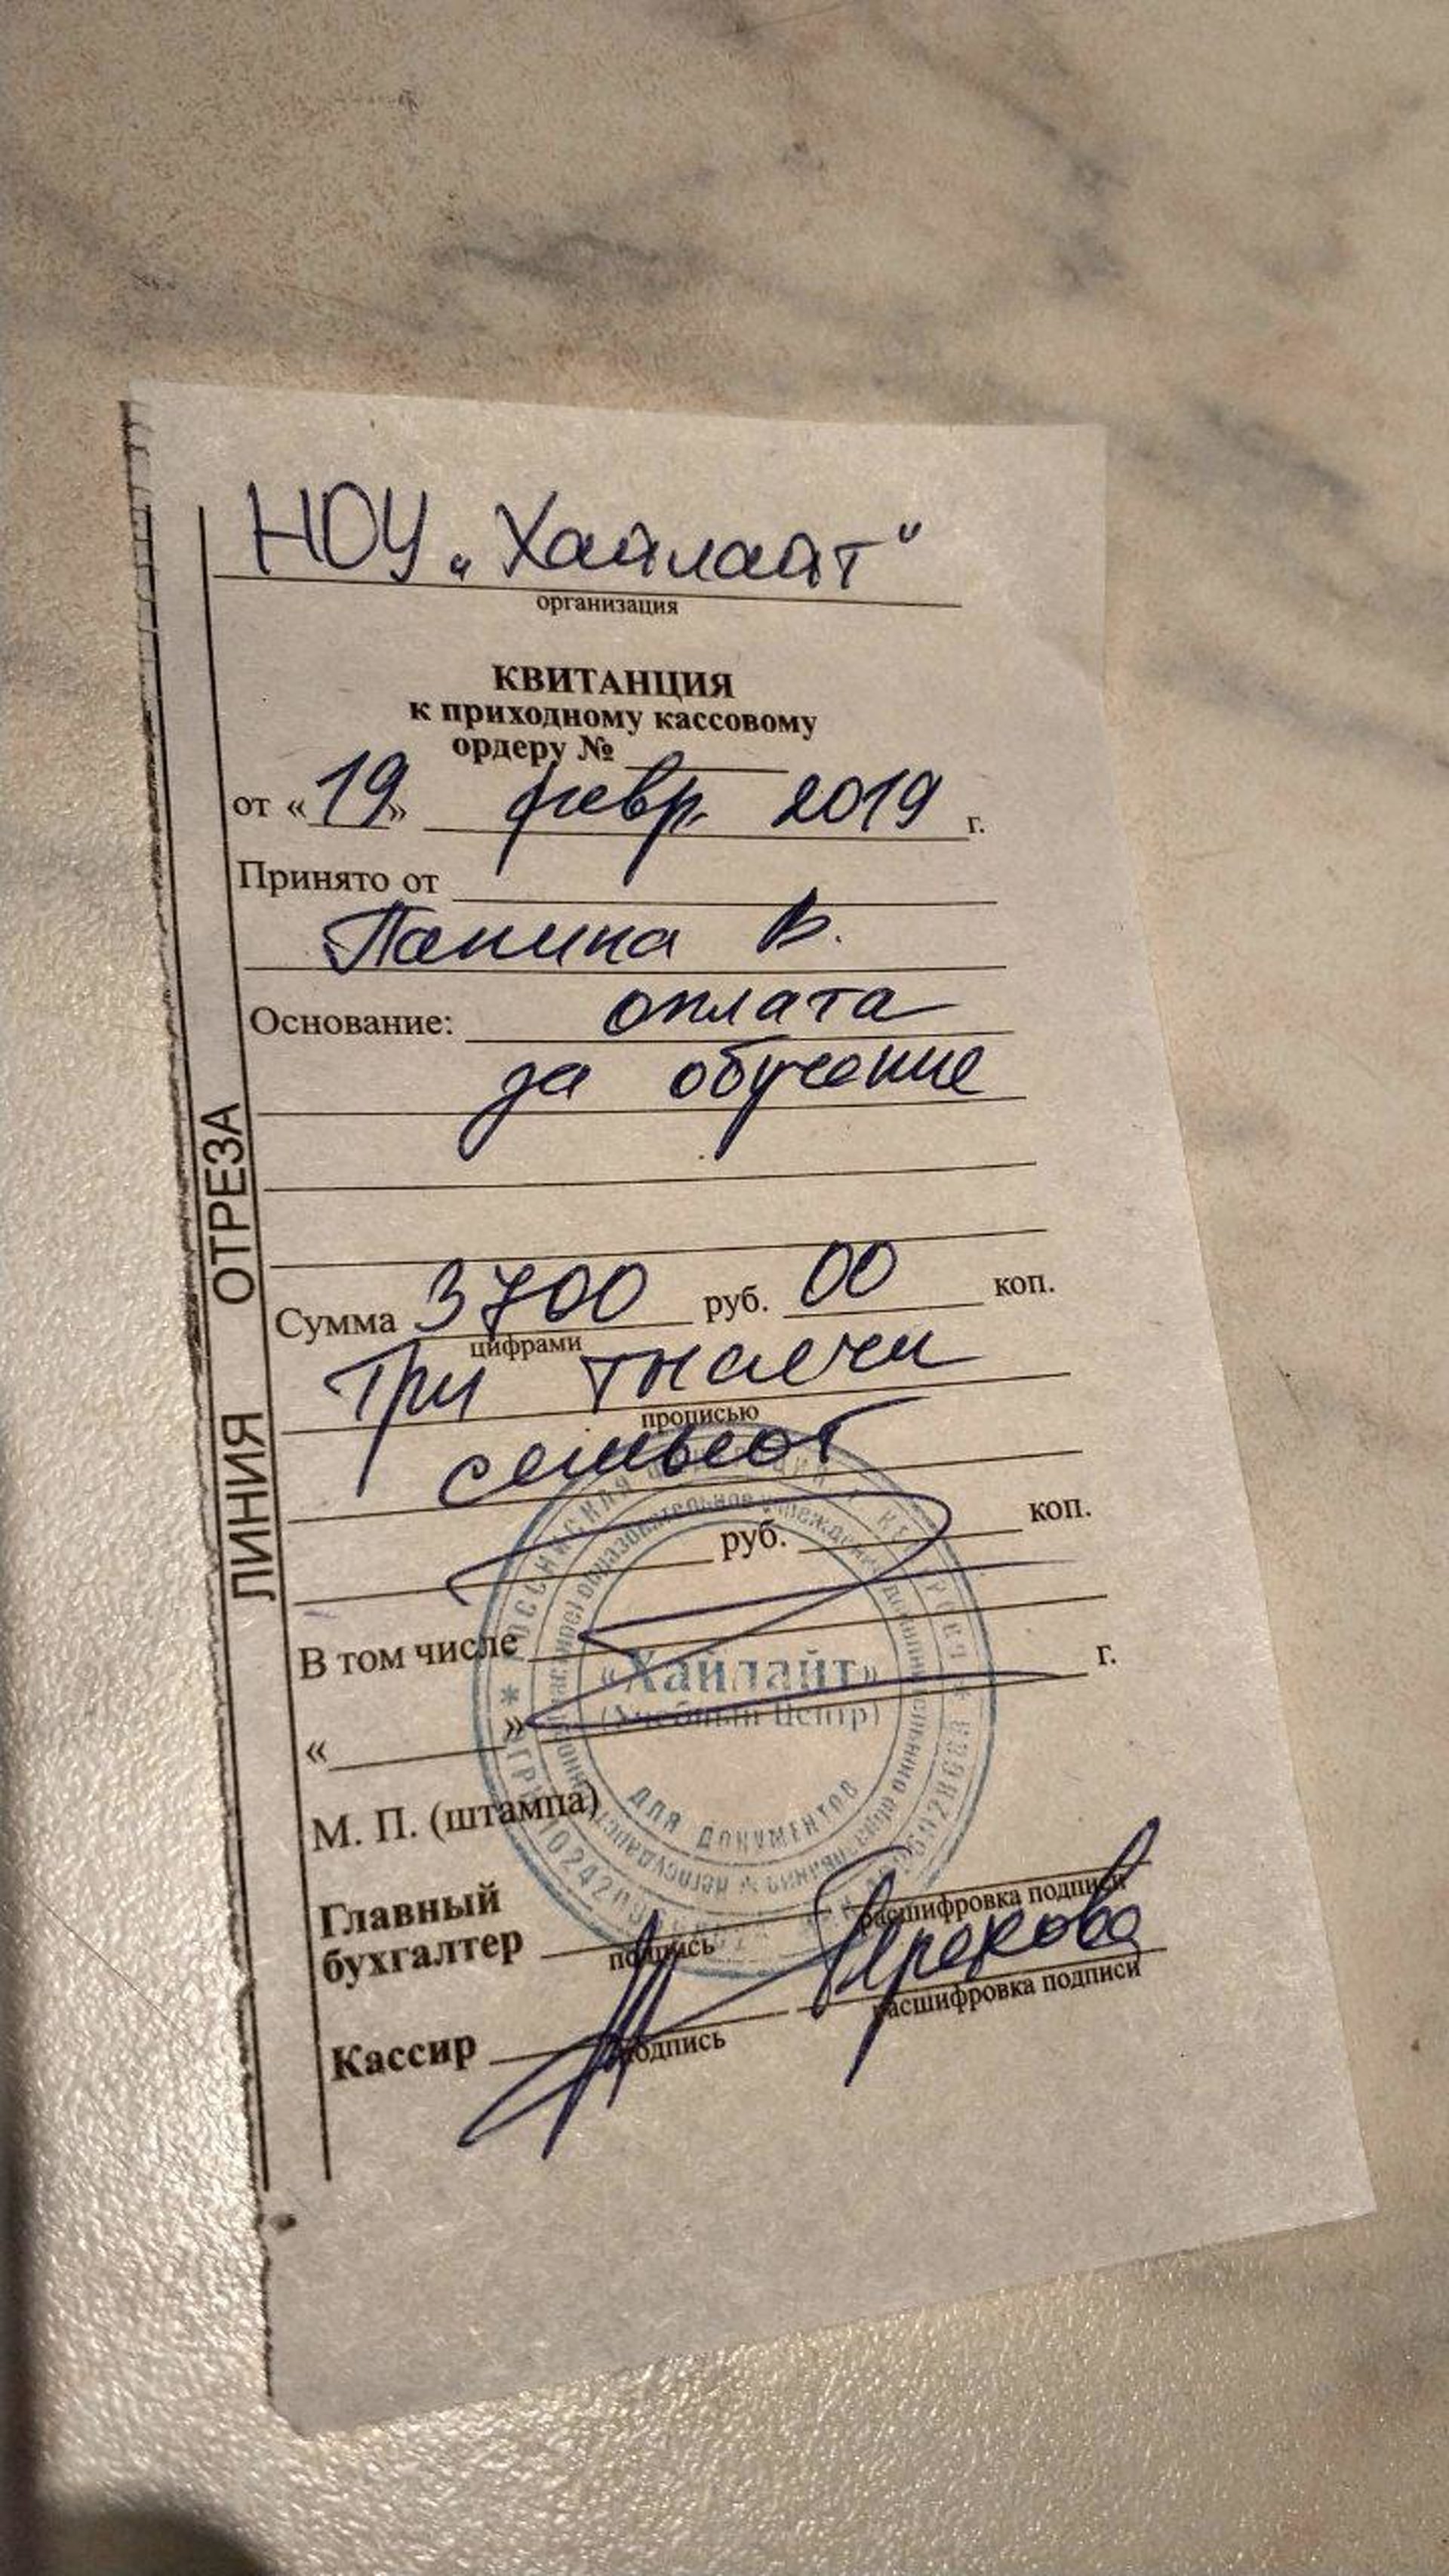 НОУ „Хайлайт"
организация
КВИТАНЦИЯ
к приходному кассовому
ордеру №
от « 19 » февр. 2019 г.
Принято от
Панина В.
Основание: оплата
за обучение
Сумма 3700 руб. 00 коп.
цифрами
Три тысячи
прописью
семьсот
руб. коп.
В том числе
« » г.
М. П. (штампа)
Главный
бухгалтер
подпись расшифровка подписи
Кассир
подпись расшифровка подписи
ЛИНИЯ ОТРЕЗА
«Хайлайт»
(Учебный Центр)
ДЛЯ ДОКУМЕНТОВ